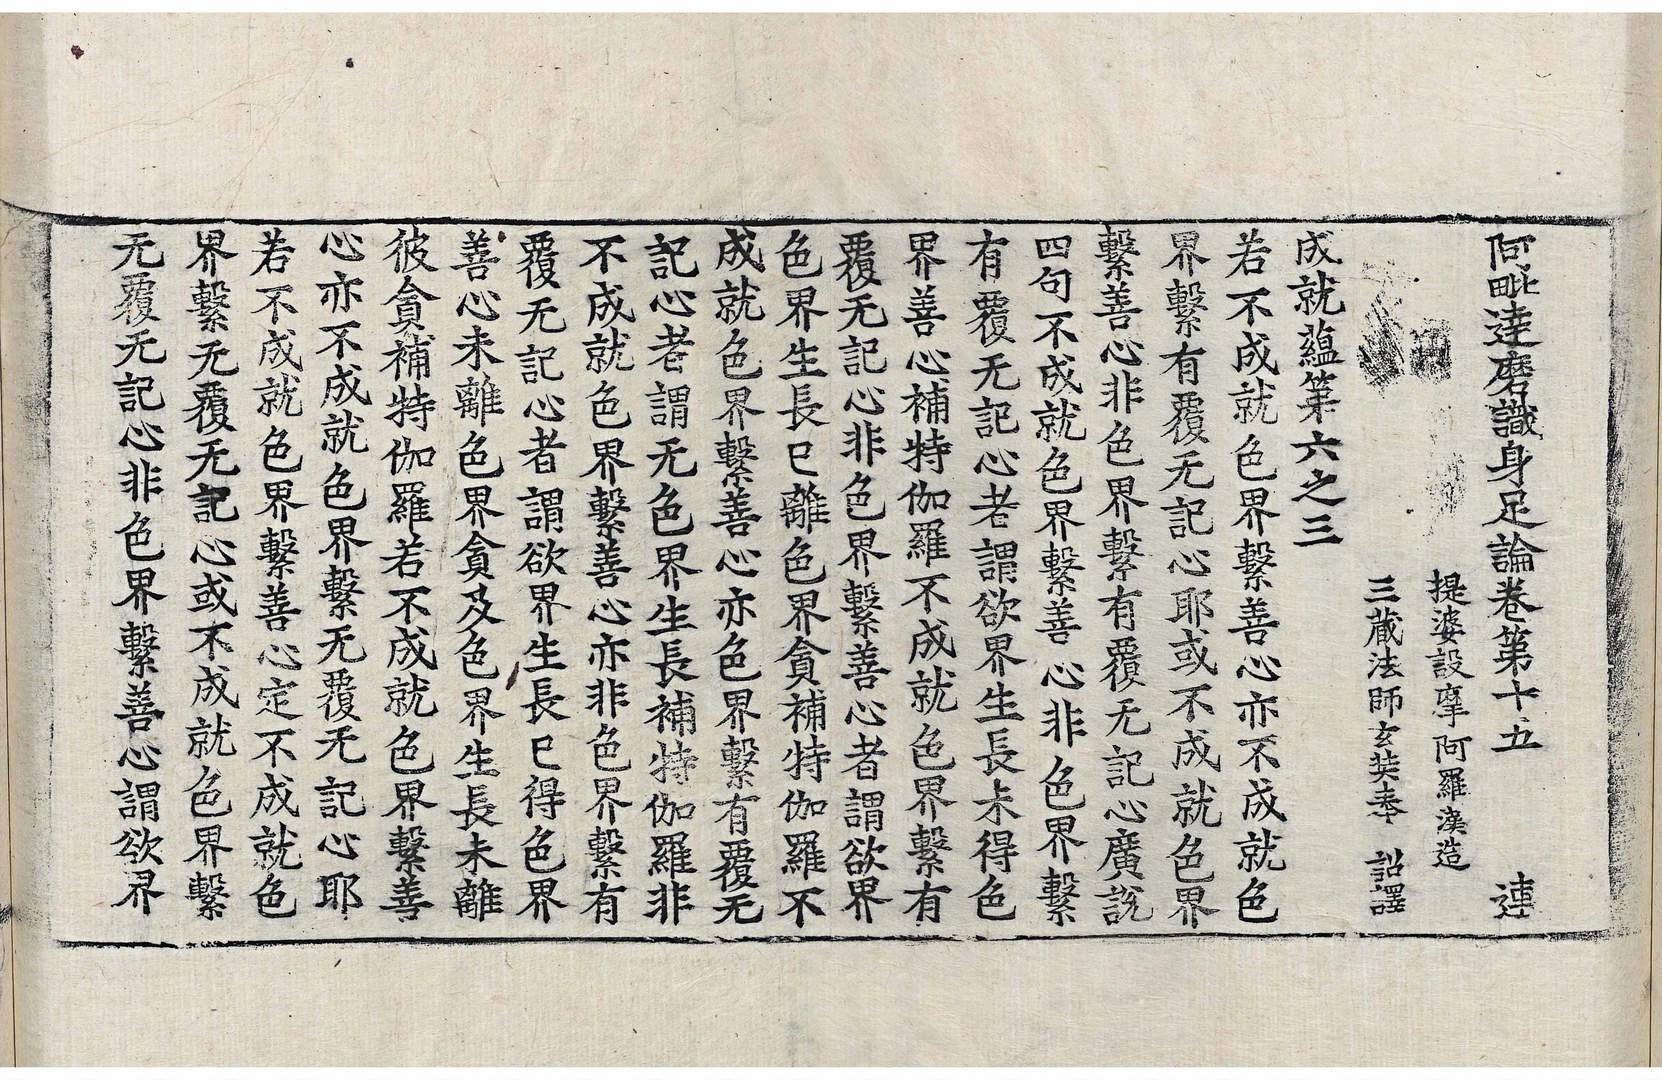 阿毗達磨識身足論卷第十五　連
提婆設摩阿羅漢造
三藏法師玄奘奉　詔譯
成就蘊第六之三
若不成就色界繫善心亦不成就色
界繫有覆无記心耶或不成就色界
繫善心非色界繫有覆无記心廣說
四句不成就色界繫善心非色界繫
有覆无記心者謂欲界生長未得色
界善心補特伽羅不成就色界繫有
覆无記心非色界繫善心者謂欲界
色界生長已離色界貪補特伽羅不
成就色界繫善心亦色界繫有覆无
記心者謂无色界生長補特伽羅非
不成就色界繫善心亦非色界繫有
覆无記心者謂欲界生長已得色界
善心未離色界貪及色界生長未離
彼貪補特伽羅若不成就色界繫善
心亦不成就色界繫无覆无記心耶
若不成就色界繫善心定不成就色
界繫无覆无記心或不成就色界繫
无覆无記心非色界繫善心謂欲界